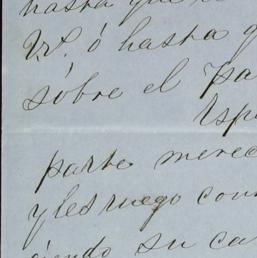 hasta que
V. ó hasta q
sóbre el pa
Esp
parte merec
y les ruego con
ciendo su ca